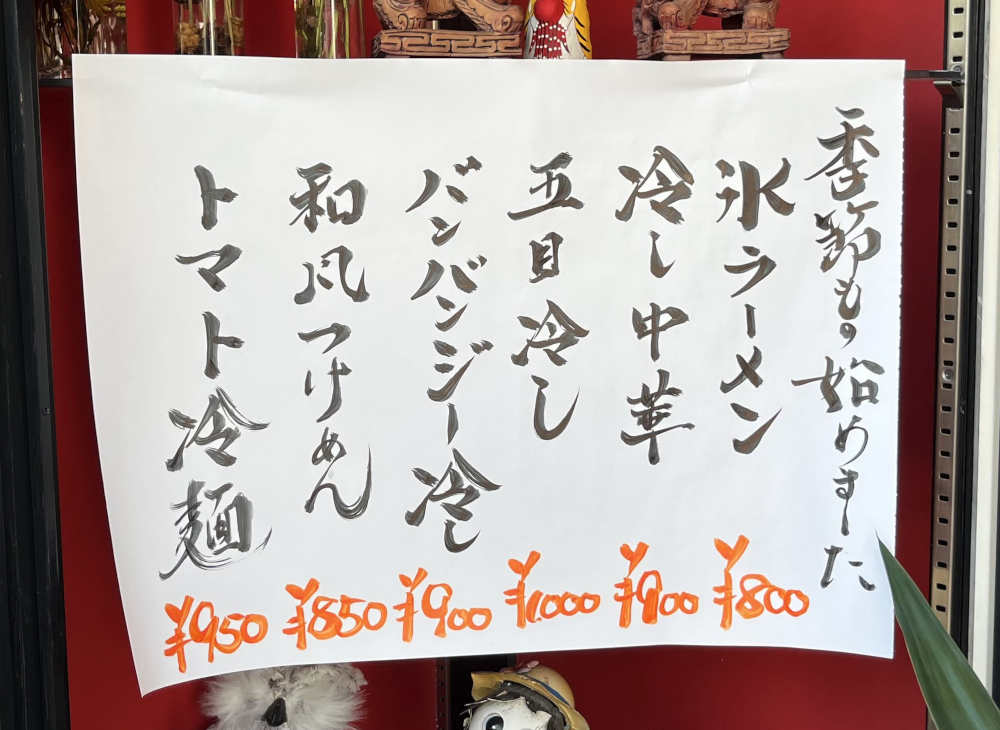 季節もの始めました
氷ラーメン ¥800
冷し中華 ¥900
五目冷し ¥1.000
バンバンジー冷し ¥900
和風つけめん ¥850
トマト冷麺 ¥950